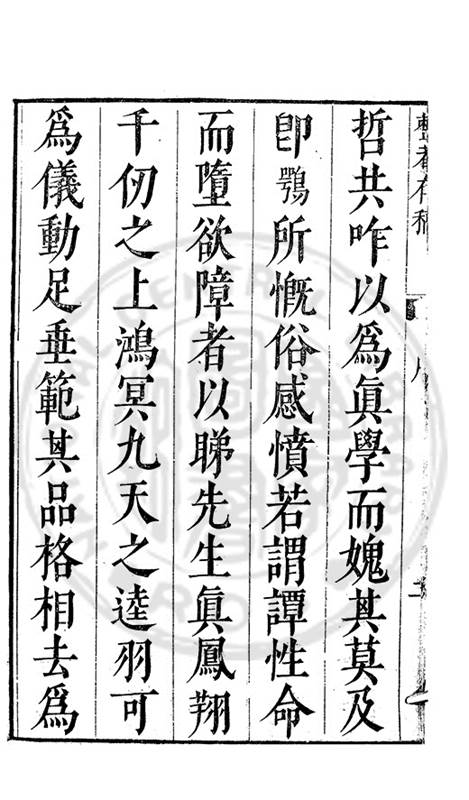 哲共咋以為眞學而媿其莫及
卽鶚所慨俗感憤若謂譚性命
而墮欲障者以睇先生眞鳳翔
千仞之上鴻冥九天之逵羽可
為儀動足垂範其品格相去為